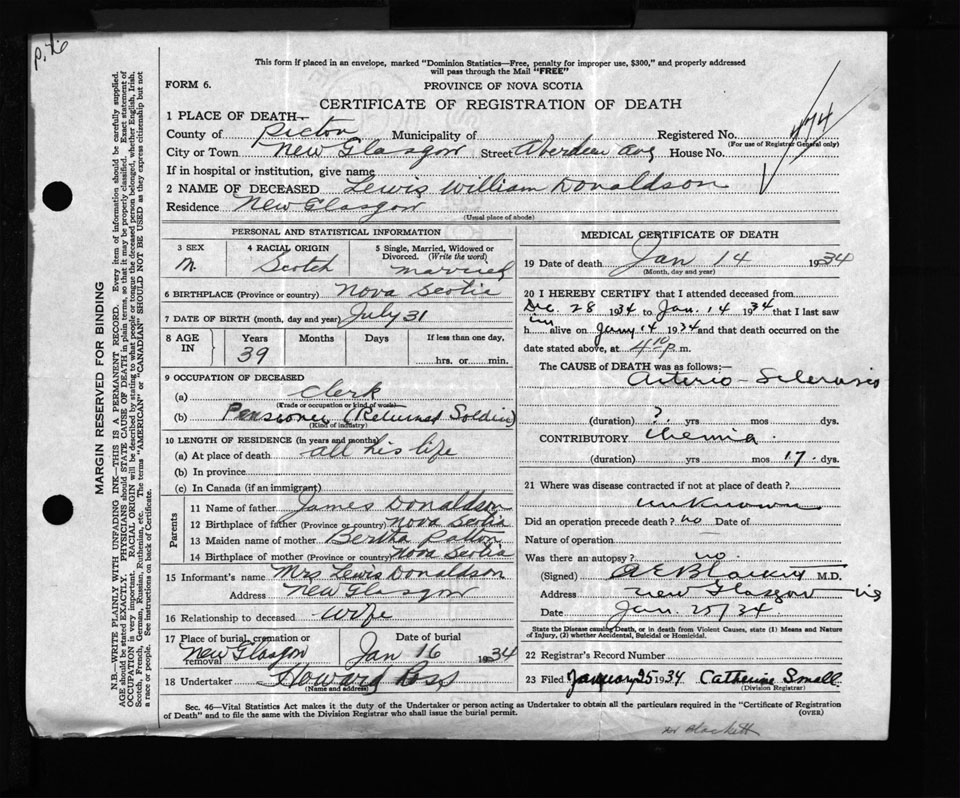 This form if placed in an envelope, marked "Dominion Statistics—Free, penalty for improper use, $300," and properly addressed
will pass through the Mail "FREE"
FORM 6.
PROVINCE OF NOVA SCOTIA
CERTIFICATE OF REGISTRATION OF DEATH
1 PLACE OF DEATH—
County of Pictou Municipality of Registered No. 474
(For use of Registrar General only)
City or Town New Glasgow Street Aberdeen Ave House No.
If in hospital or institution, give name
2 NAME OF DECEASED Lewis William Donaldson
Residence New Glasgow
(Usual place of abode)
PERSONAL AND STATISTICAL INFORMATION
3 SEX M.
4 RACIAL ORIGIN Scotch
5 Single, Married, Widowed or
Divorced. (Write the word)
married
6 BIRTHPLACE (Province or country) Nova Scotia
7 DATE OF BIRTH (month, day and year) July 31
8 AGE IN Years 39 Months Days If less than one day, hrs. or min.
9 OCCUPATION OF DECEASED
(a) Clerk
(Trade or occupation or kind of work)
(b) Pensioner (Returned Soldier)
(Kind of industry)
10 LENGTH OF RESIDENCE (in years and months)
(a) At place of death all his life
(b) In province
(c) In Canada (if an immigrant)
Parents
11 Name of father James Donaldson
12 Birthplace of father (Province or country) Nova Scotia
13 Maiden name of mother Bertha
14 Birthplace of mother (Province or country) Nova Scotia
15 Informant's name Mrs Lewis Donaldson
Address New Glasgow
16 Relationship to deceased wife
17 Place of burial, cremation or
removal New Glasgow
Date of burial Jan 16 1934
18 Undertaker Howard Ross
(Name and address)
MEDICAL CERTIFICATE OF DEATH
19 Date of death Jan 14 1934
(Month, day and year)
20 I HEREBY CERTIFY that I attended deceased from
Dec 28 1934 to Jan. 14 1934 that I last saw
h im alive on Jany 14 1934 and that death occurred on
date stated above, at 4 10 p. m.
The CAUSE of DEATH was as follows:—
Arterio-Sclerosis
(duration) ? yrs mos dys.
CONTRIBUTORY
(duration) yrs mos 17 dys.
21 Where was disease contracted if not at place of death?
unknown
Did an operation precede death? no Date of
Nature of operation
Was there an autopsy? no.
(Signed) M.D.
Address New Glasgow NS
Date Jan. 25/34
State the Disease causing Death, or in death from Violent Causes, state (1) Means and Nature
of Injury, (2) whether Accidental, Suicidal or Homicidal.
22 Registrar's Record Number
23 Filed January 25 1934 Catherine Small
(Division Registrar)
Sec. 46—Vital Statistics Act makes it the duty of the Undertaker or person acting as Undertaker to obtain all the particulars required in the "Certificate of Registration
of Death" and to file the same with the Division Registrar who shall issue the burial permit.
(OVER)
Dr Blackett
MARGIN RESERVED FOR BINDING
N.B.—WRITE PLAINLY WITH UNFADING INK—THIS IS A PERMANENT RECORD. Every item of information should be carefully supplied.
AGE should be stated EXACTLY. PHYSICIANS should STATE CAUSE OF DEATH in plain terms, so that it may be properly classified. Exact statement of
OCCUPATION is very important. RACIAL ORIGIN will be described by stating to what people or tongue the deceased person belonged, whether English, Irish,
Scotch, French, German, Russian, Ruthenian, etc. The terms "AMERICAN" or "CANADIAN" SHOULD NOT BE USED as they express citizenship but not
a race or people. See instructions on back of Certificate.